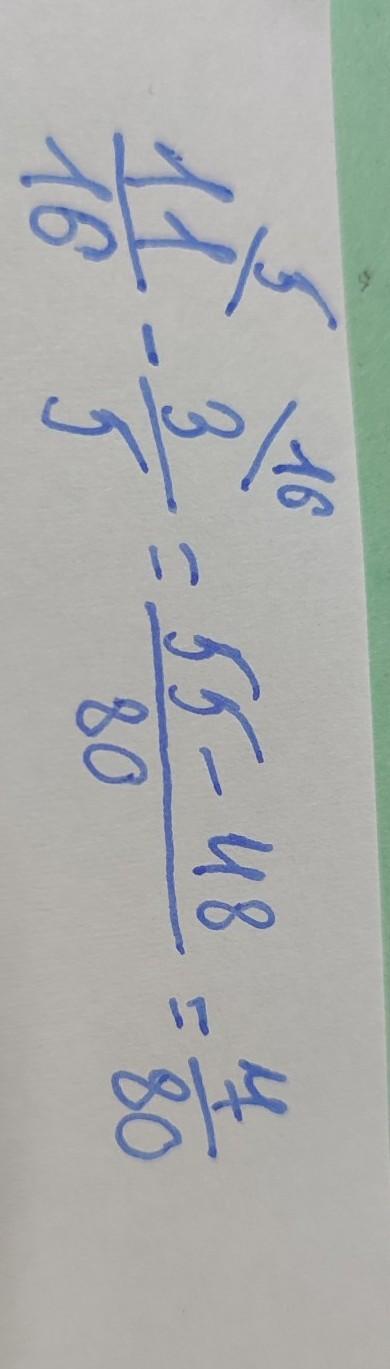 11/16 \5 - 3/5 \16 = (55 - 48)/80 = 7/80